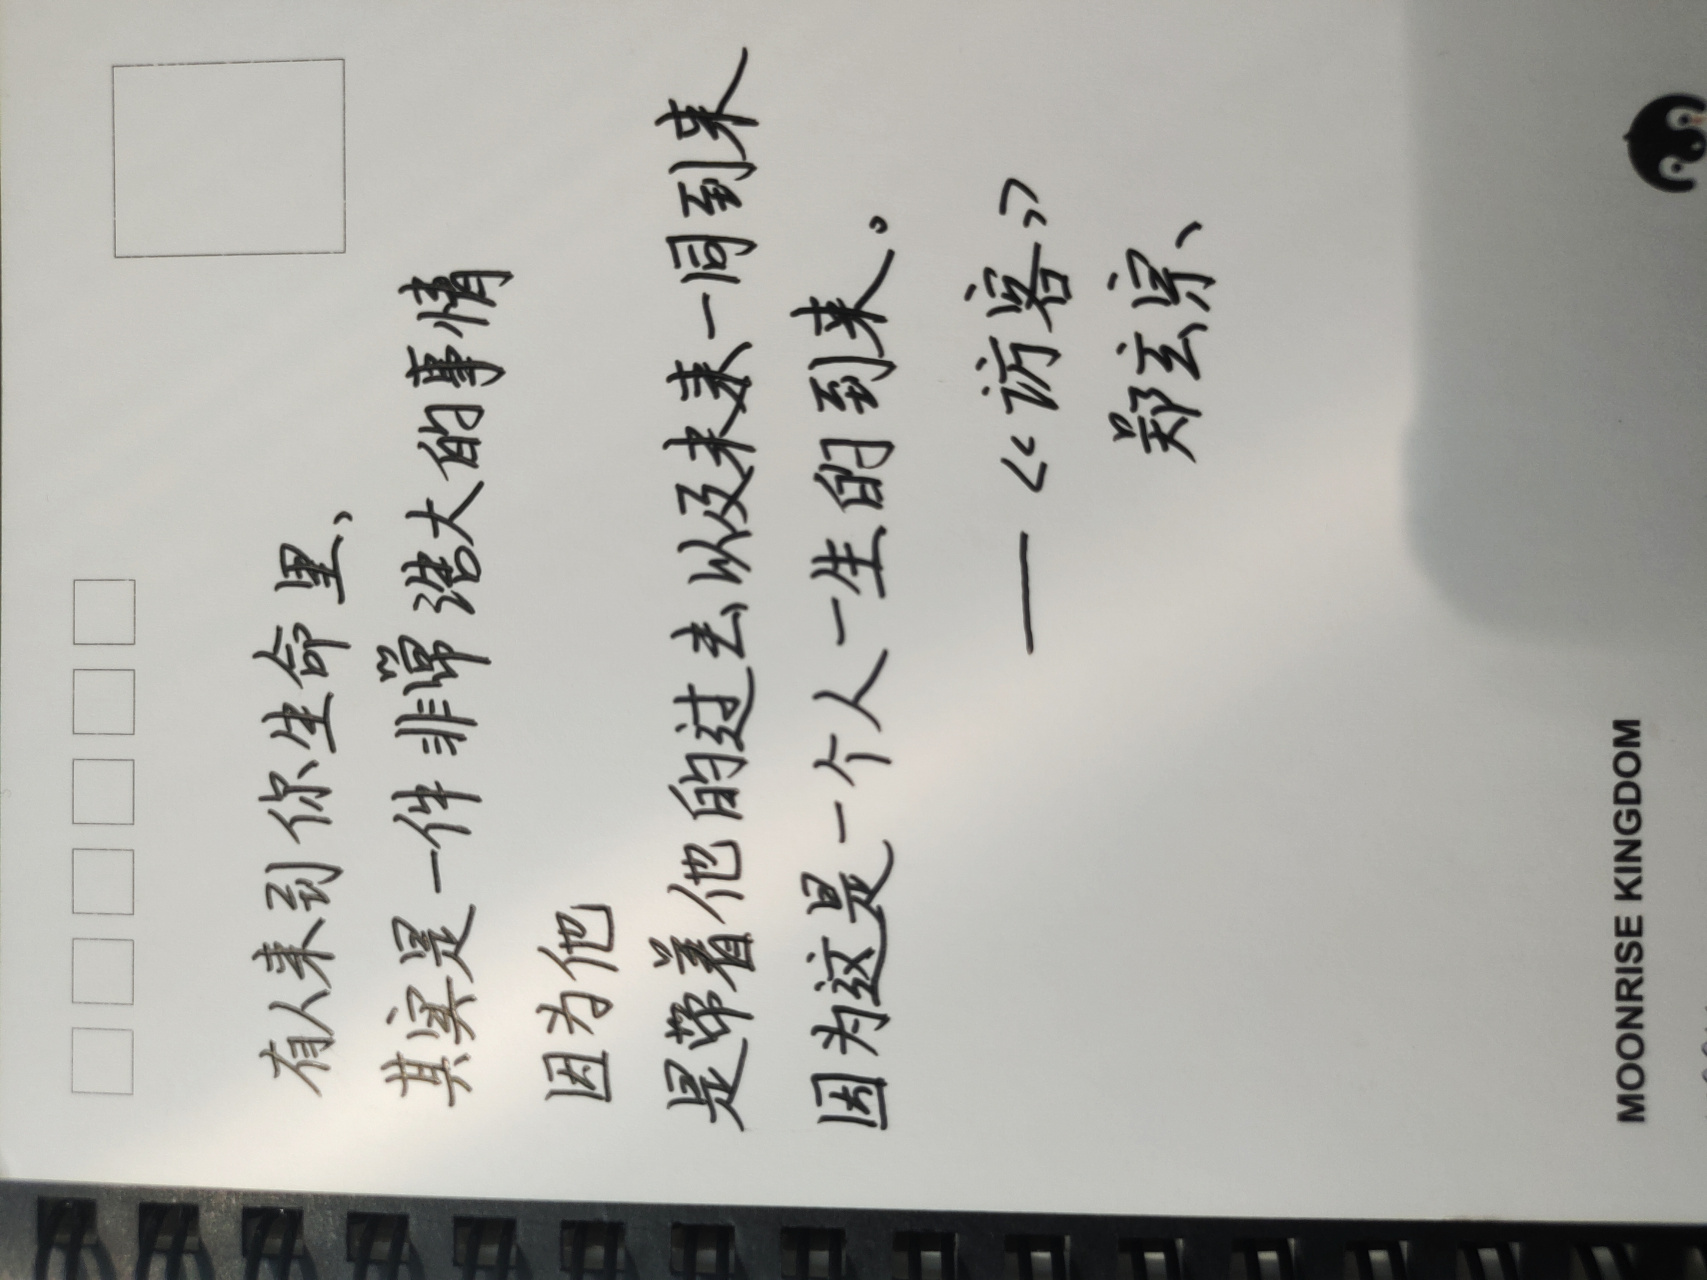 有人来到你生命里、
其实是一件非常浩大的事情
因为他
是带着他的过去以及未来一同到来
因为这是一个人一生的到来。
——《访客》
郑玄宗、
MOONRISE KINGDOM